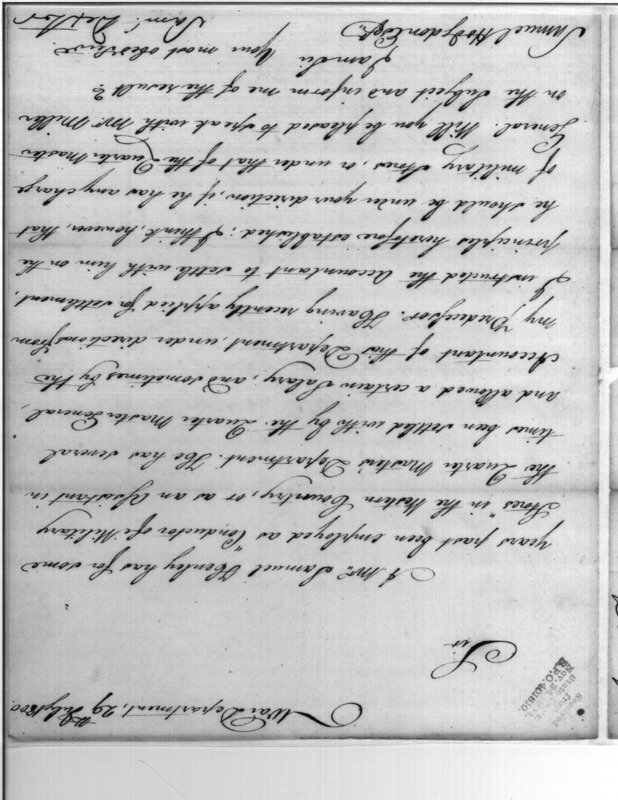 War Department, 29 July 1800.
Sir
A Mr. Samuel Henley has for some
years past been employed as "Conductor of Military
Stores" in the Western Country, or as an Assistant in
the Quarter Masters Department. He has several
times been settled with by the Quarter Master General,
and allowed a certain Salary, and sometimes by the
Accountant of this Department under directions from
my Predecessor. Having recently applied for settlement,
I instructed the Accountant to settle with him on the
principles heretofore established; I think, however, that
he should be under your direction, if he has any charge
of military Stores, or under that of the Quarter Master
General. Will you be pleased to speak with Mr. Miller
on the subject and inform me of the result?
I am Sir
Your most obed. Serv.
Sam. Dexter
Samuel Hodgdon Esqr.
Nov. 24
B.P.O. 401810